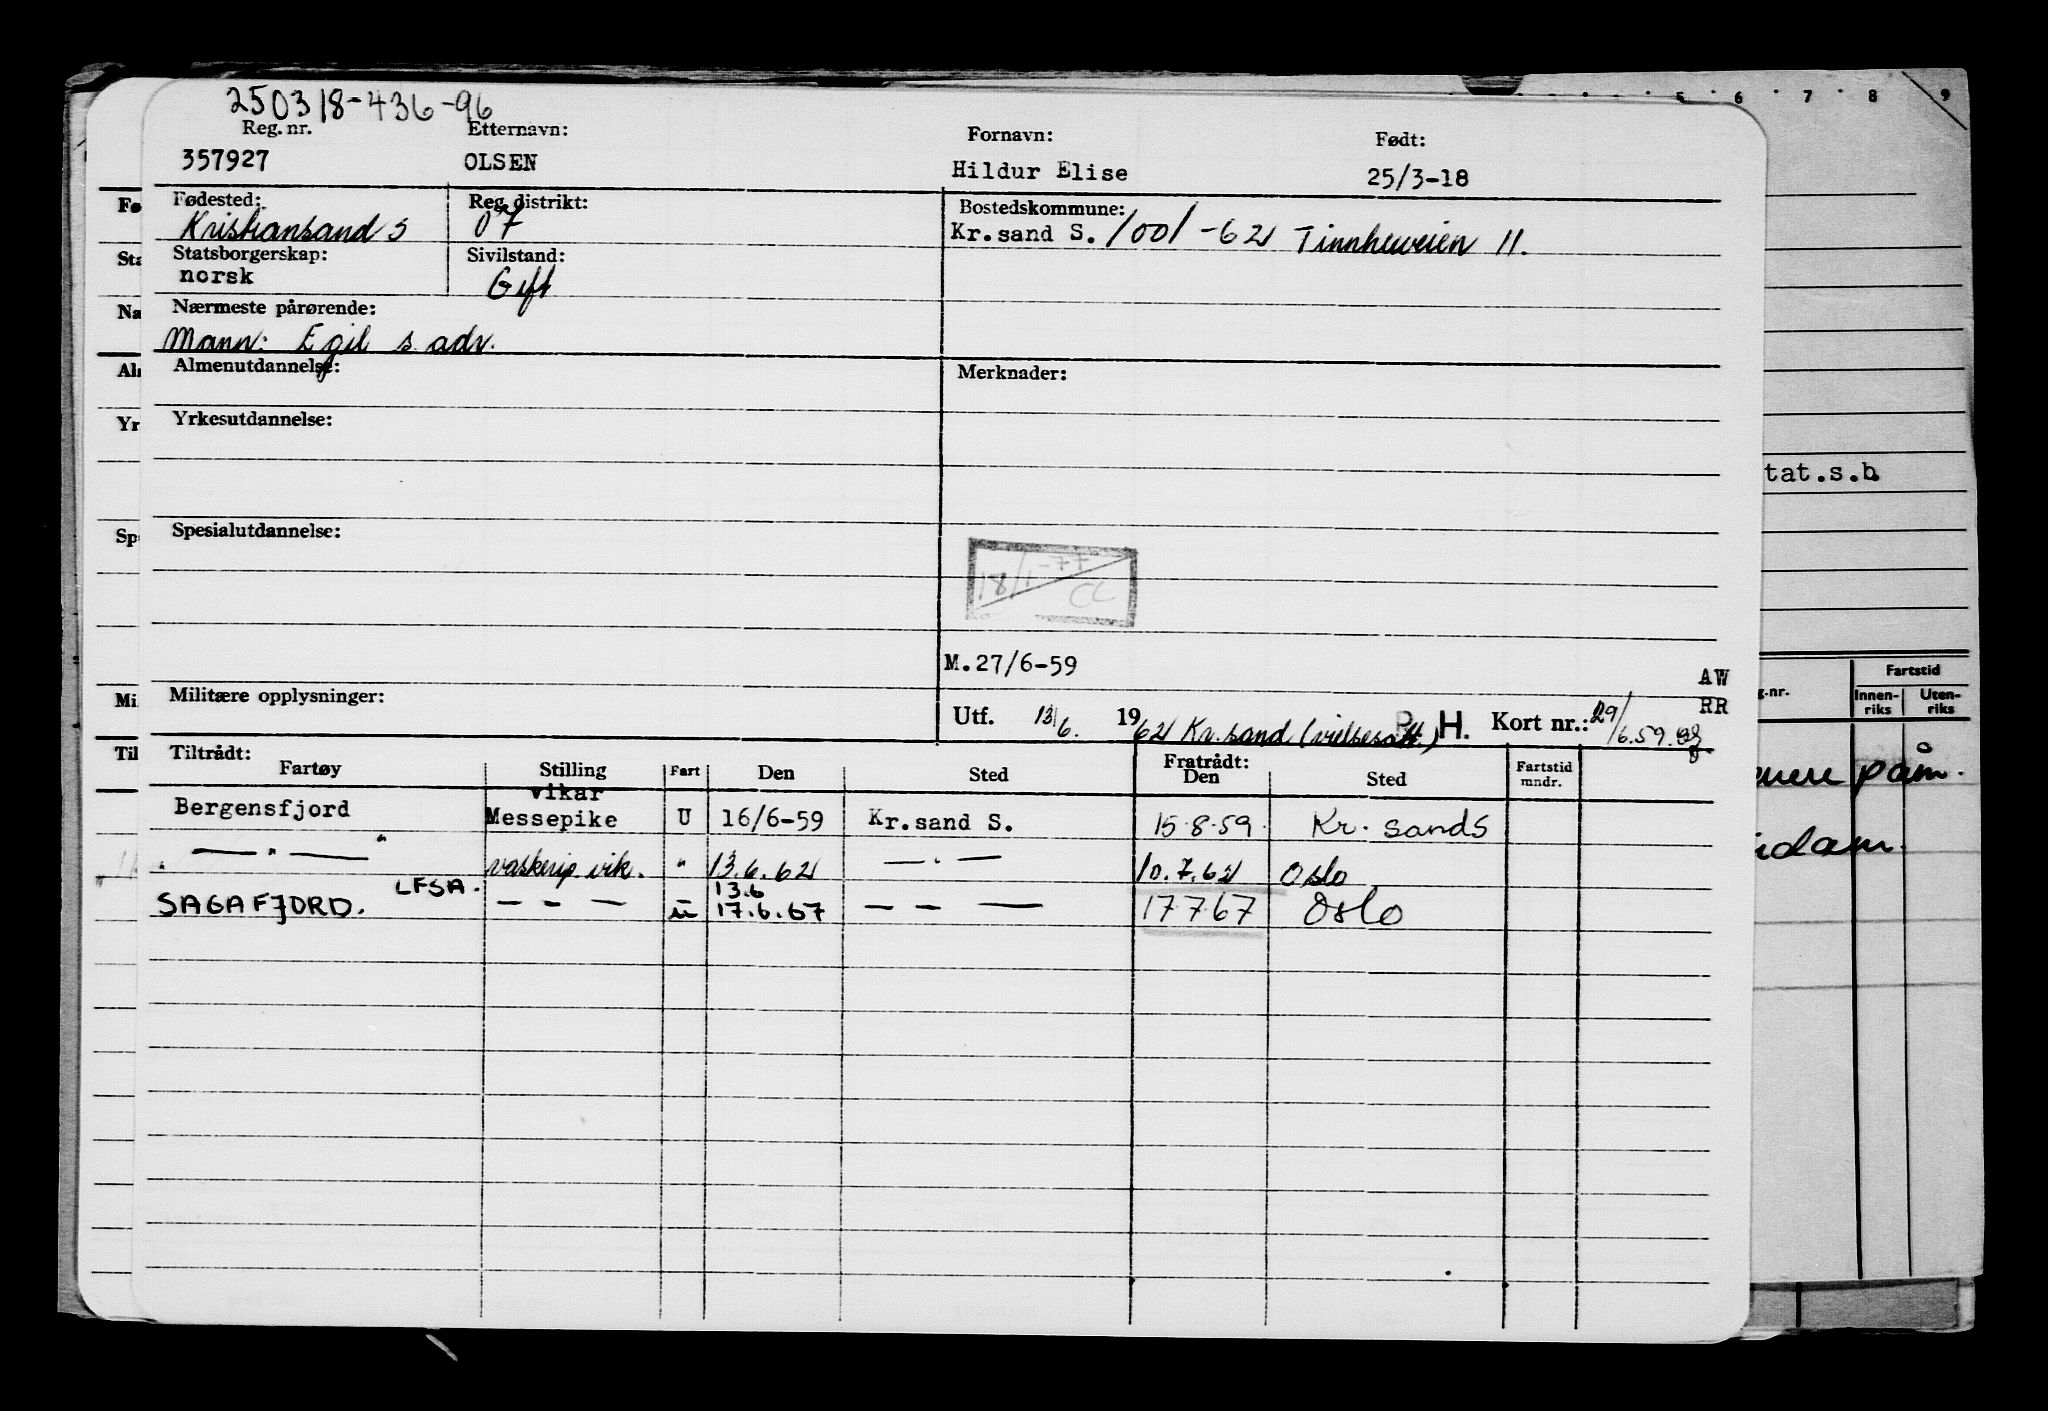 250318-436-96
Reg. nr. Etternavn: Fornavn: Født:
357927 OLSEN Hildur Elise 25/3-18
Fødested: Reg. distrikt: Bostedskommune:
Kristiansand S 07 Kr.sand S. 1001-62 Tinnheiveien 11.
Statsborgerskap: Sivilstand:
norsk Gift
Nærmeste pårørende:
Mann: Egil s. adr.
Almenutdannelse: Merknader:
Yrkesutdannelse:
tat.s.b
Spesialutdannelse:
18/1-77 CC
M.27/6-59
AW
RR
Militære opplysninger:
Utf. 13/6. 1962 Kr.sand (vielsesatt.) H. Kort nr.: 29/6.59.
Tiltrådt: Fratrådt:
Fartøy Stilling Fart Den Sted Den Sted Fartstid mndr.
vikar
Bergensfjord Messepike U 16/6-59 Kr.sand S. 15.8.59. Kr. sand S
— " — " vaskerip. vik. " 13.6.62 — " — 10.7.62 Oslo
LFSA. 13.6
SAGAFJORD. — — — u 17.6.67 — — — 17.7.67 Oslo
5 6 7 8 9
Fartstid
g.nr. Innen-riks Uten-riks
Fø
Sta
Na
Al
Yr
Sp
Mi
Til